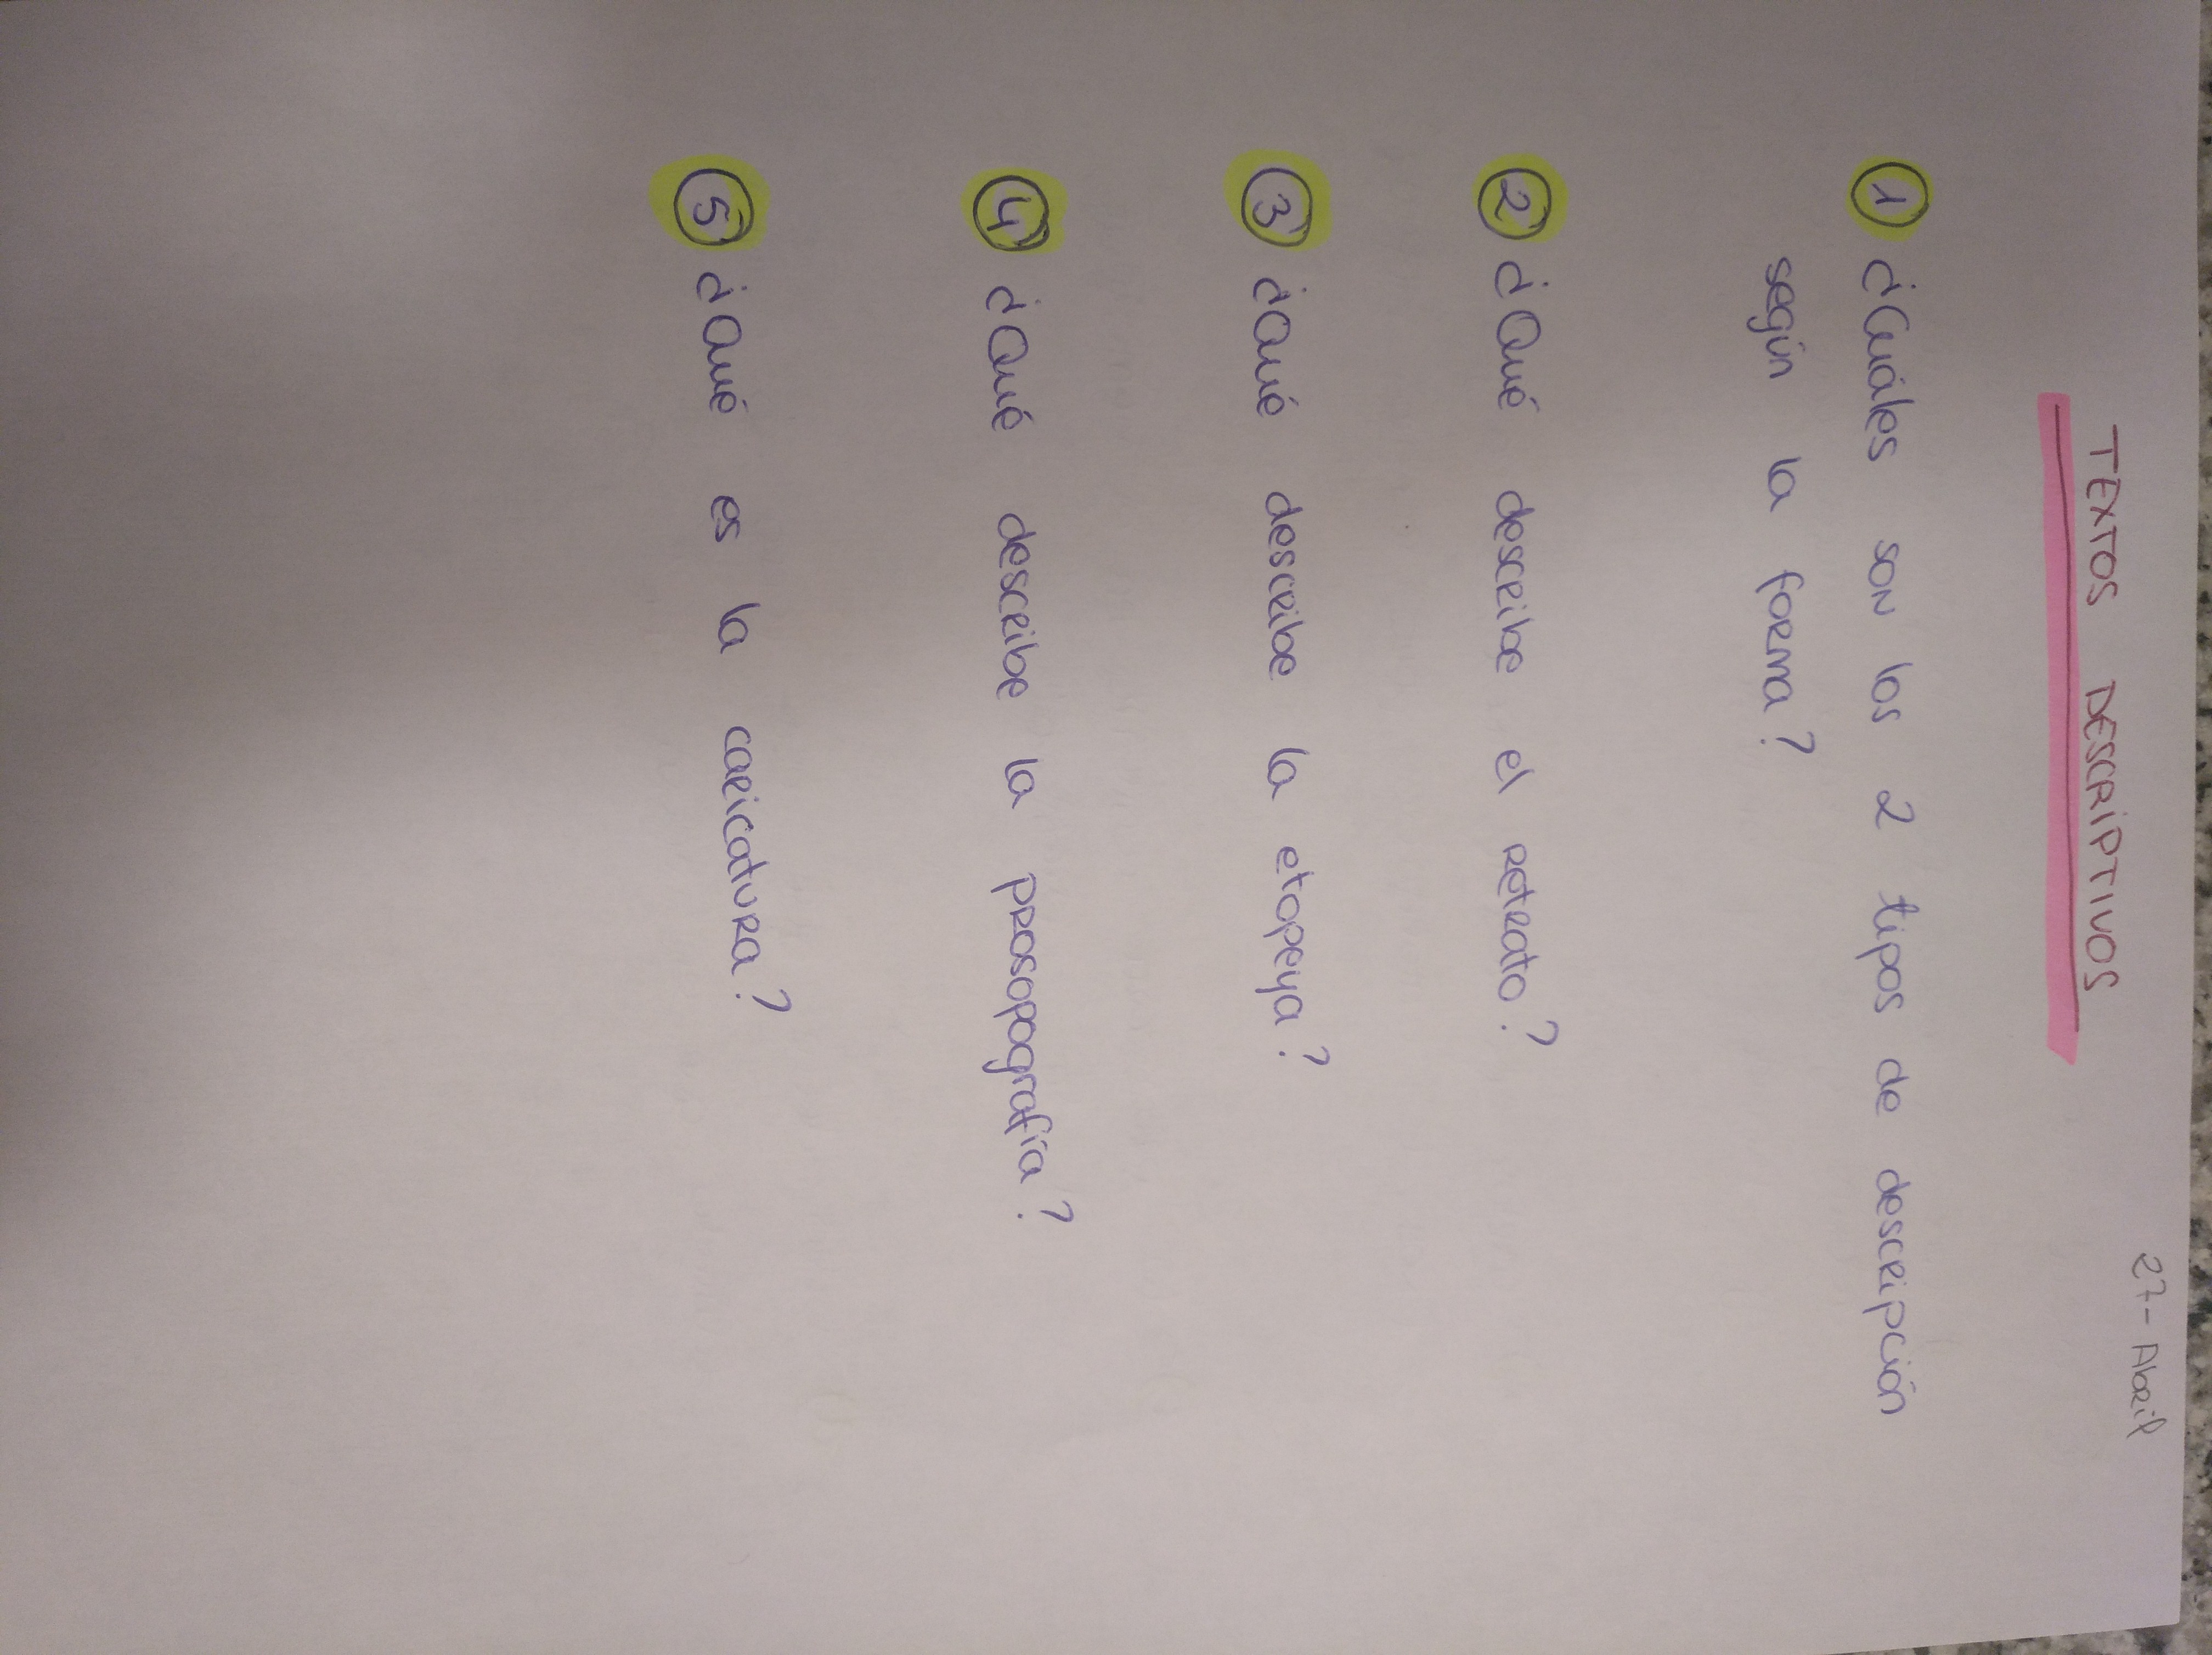 27-Abril
TEXTOS DESCRIPTIVOS
1 ¿Cuáles son los 2 tipos de descripción
según la forma?
2 ¿Qué describe el retrato?
3 ¿Qué describe la etopeya?
4 ¿Qué describe la prosopografía?
5 ¿Qué es la caricatura?